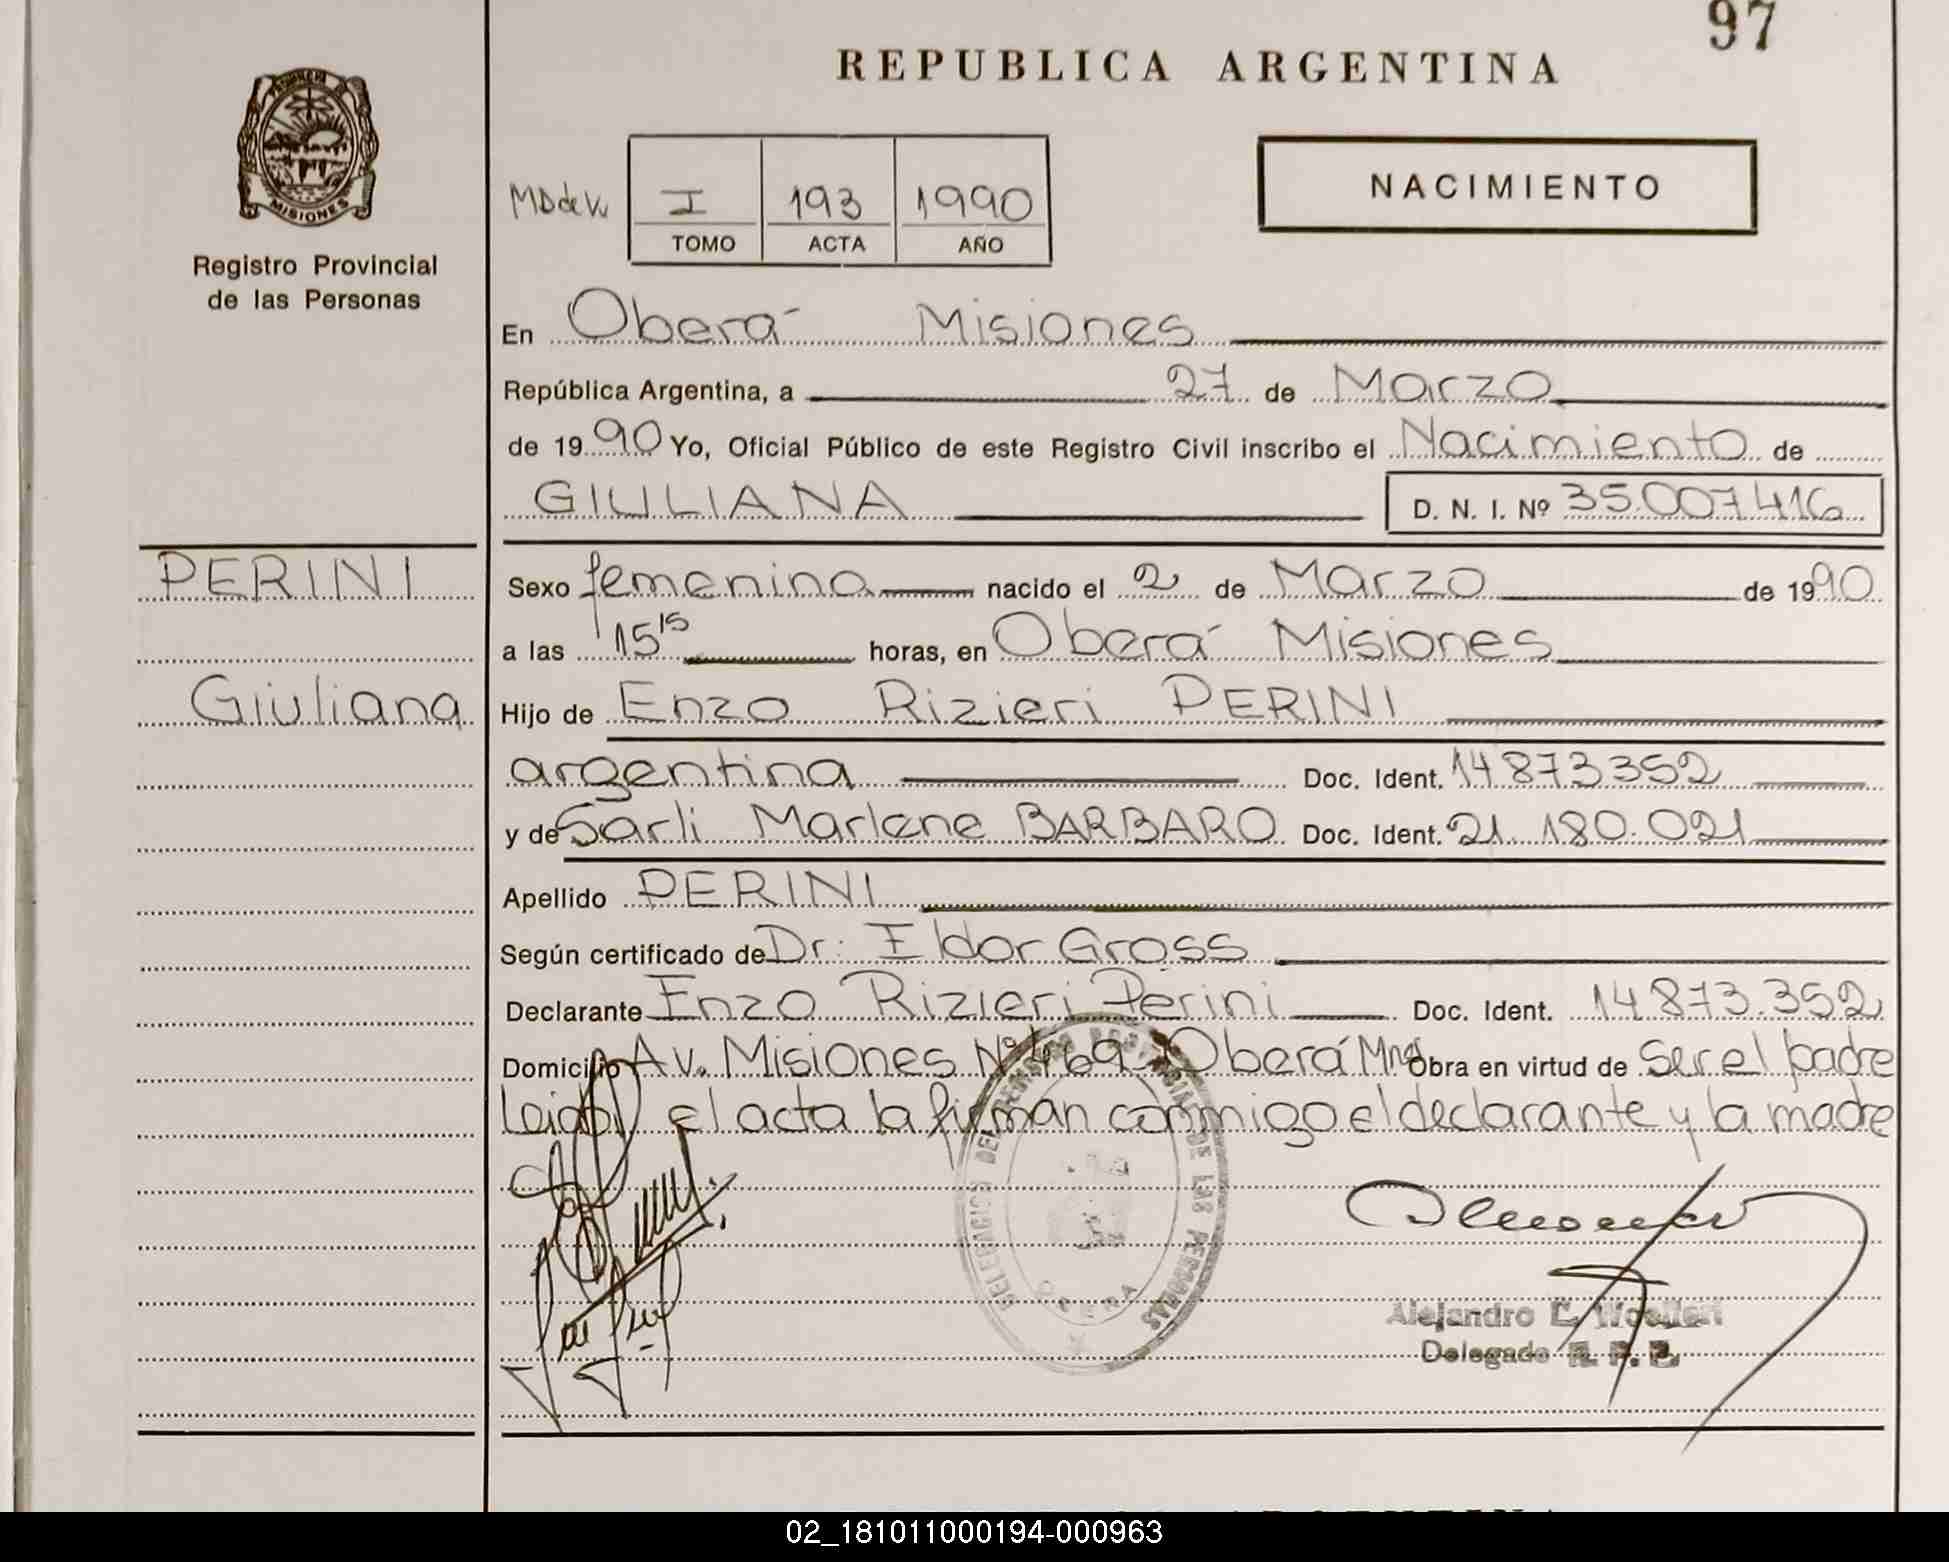 97
REPUBLICA ARGENTINA
PROVINCIA
MISIONES
Registro Provincial
de las Personas
I 193 1990
TOMO ACTA AÑO
NACIMIENTO
En Oberá Misiones
República Argentina, a 27 de Marzo
de 1990 Yo, Oficial Público de este Registro Civil inscribo el Nacimiento de
GIULIANA D. N. I. Nº 35.007.416
PERINI
Giuliana
Sexo femenina nacido el 2 de Marzo de 1990
a las 15 15 horas, en Oberá Misiones
Hijo de Enzo Rizieri PERINI
argentina Doc. Ident. 14.873.352
y de Sarli Marlene BARBARO Doc. Ident. 21.180.021
Apellido PERINI
Según certificado de Dr. Ildor Gross
Declarante Enzo Rizieri Perini Doc. Ident. 14.873.352
Domicilio Av. Misiones Nº 469 Oberá Mnes Obra en virtud de Ser el padre
Leida el acta la firman conmigo el declarante y la madre
DELEGACION DEL REGISTRO PROVINCIAL DE LAS PERSONAS
OBERA
Alejandro E.
Delegado R. P. P.
02_181011000194-000963